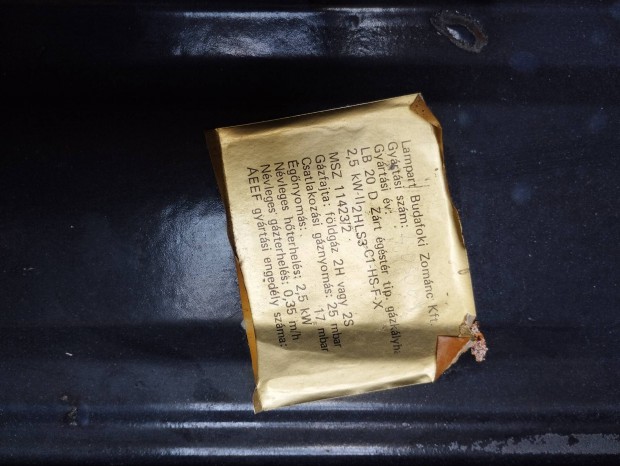 Lampart Budafoki Zománc Kft
Gyártási szám:
Gyártási év:
LB 20 D Zárt égéstér tip. gázkályh
2,5 kW-II2HLS3-C1-HS-F-X
MSZ 11423/2
Gázfajta: földgáz 2H vagy 2S
Csatlakozási gáznyomás: 25 mbar
Égőnyomás: 17 mbar
Névleges hőterhelés: 2,5 kW
Névleges gázterhelés: 0,35 m/h
AEEF gyártási engedély száma: